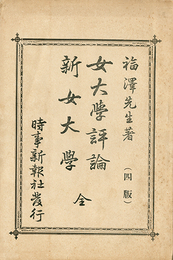 福澤先生著（四版）
女大學評論
新女大學 全
時事新報社發行